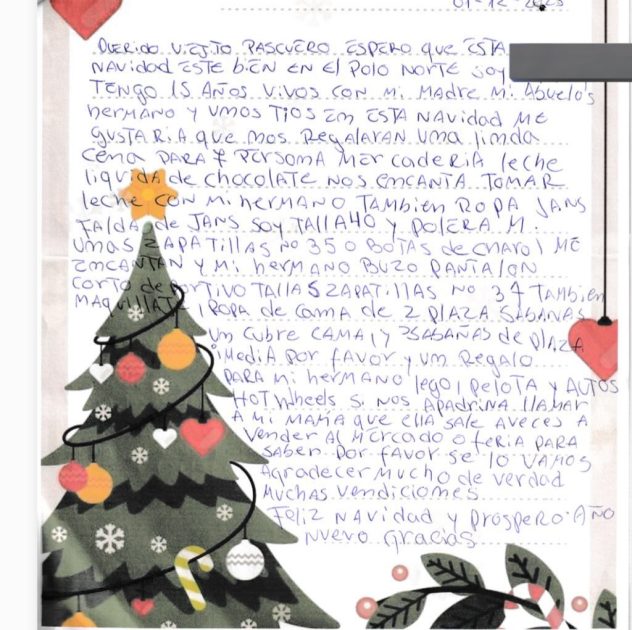 01-12-2025
QUERIDO VIEJITO PASCUERO ESPERO QUE ESTA
NAVIDAD ESTE BIEN EN EL POLO NORTE SOY
TENGO 15 AÑOS VIVOS CON MI MADRE MI ABUELOS
HERMANO Y UNOS TIOS EN ESTA NAVIDAD ME
GUSTARIA QUE NOS REGALARAN UNA LINDA
CENA PARA 7 PERSONA MERCADERIA LECHE
LIQUIDA DE CHOCOLATE NOS ENCANTA TOMAR
LECHE CON MI HERMANO TAMBIEN ROPA JANS
FALDA DE JANS SOY TALLA 40 Y POLERA M.
UNAS ZAPATILLAS Nº 35 O BOTAS DE CHAROL ME
ENCANTAN Y MI HERMANO BUZO PANTALON
CORTO DEPORTIVO TALLA S ZAPATILLAS Nº 37 TAMBIEN
MAQUILLAJE ROPA DE CAMA DE 2 PLAZA SABANAS
UN CUBRE CAMA Y SABAÑAS DE PLAZA
MEDIA POR FAVOR Y UN REGALO
PARA MI HERMANO LEGO, PELOTA Y AUTOS
HOT WHEELS SI NOS APADRINA LLAMAR
A MI MAMA QUE ELLA SALE AVECES A
VENDER AL MERCADO O FERIA PARA
SABER POR FAVOR SE LO VAMOS
AGRADECER MUCHO DE VERDAD
MUCHAS VENDICIONES
FELIZ NAVIDAD Y PROSPERO AÑO
NUEVO GRACIAS